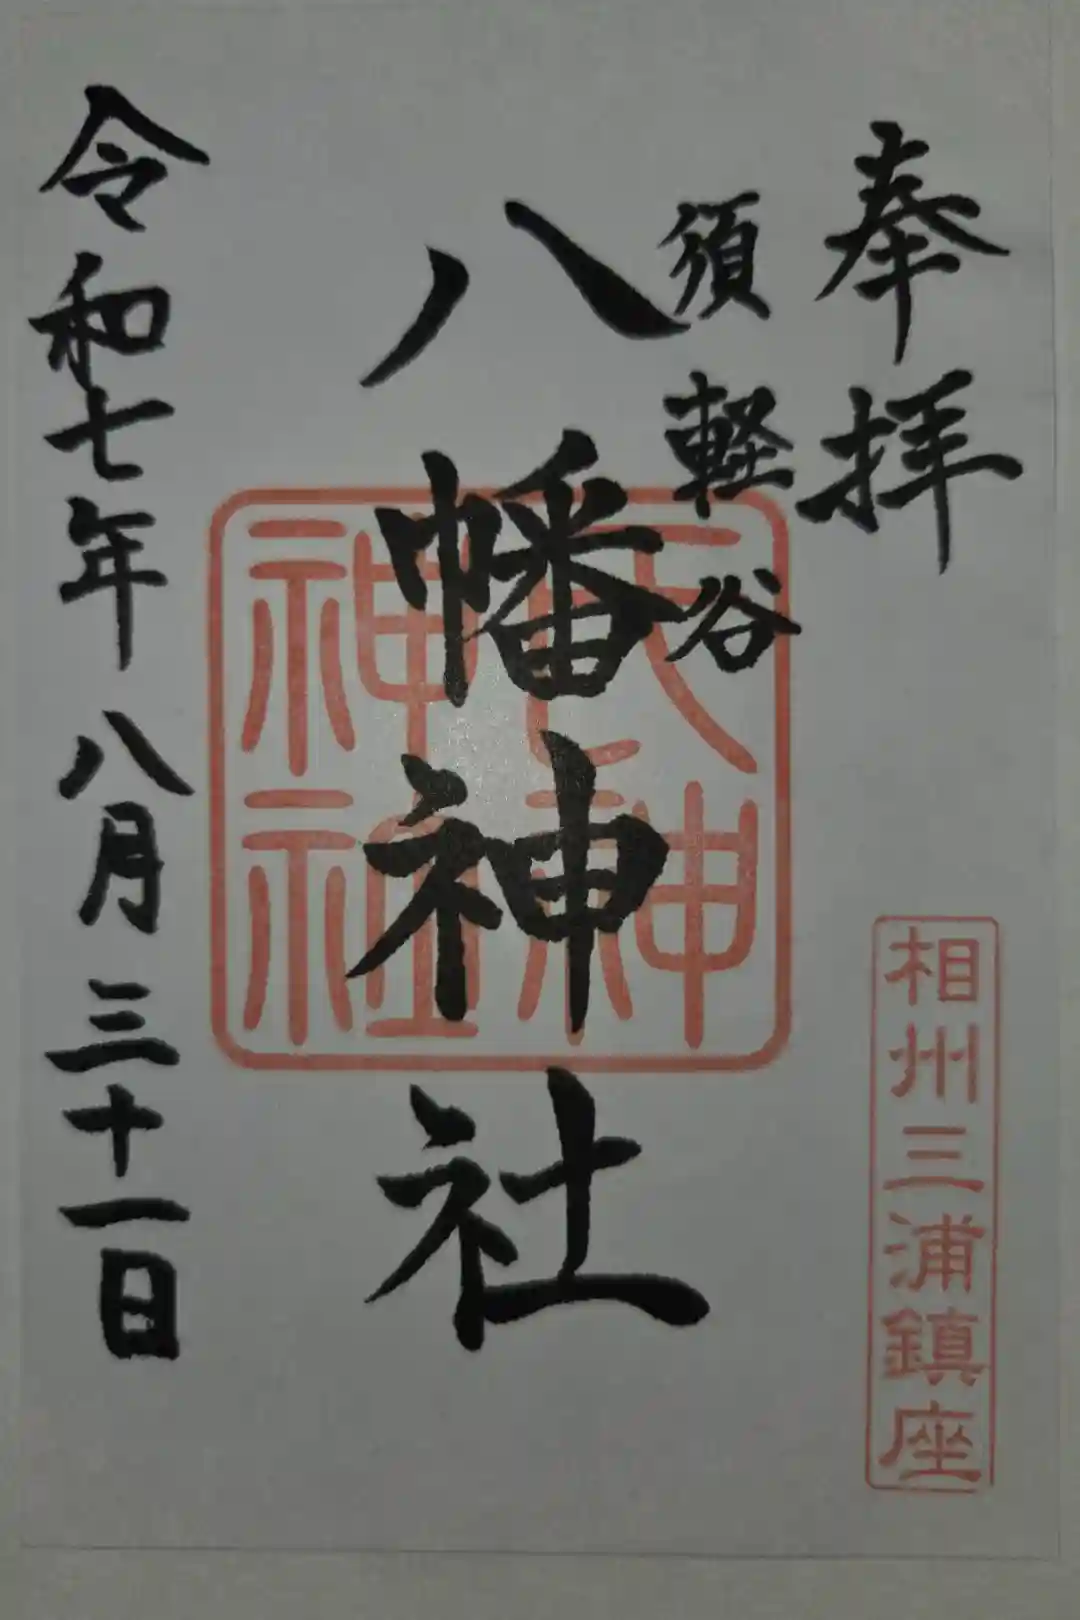 奉拝
須軽谷
八幡神社
令和七年八月三十一日
氏神
神社
相州三浦鎮座